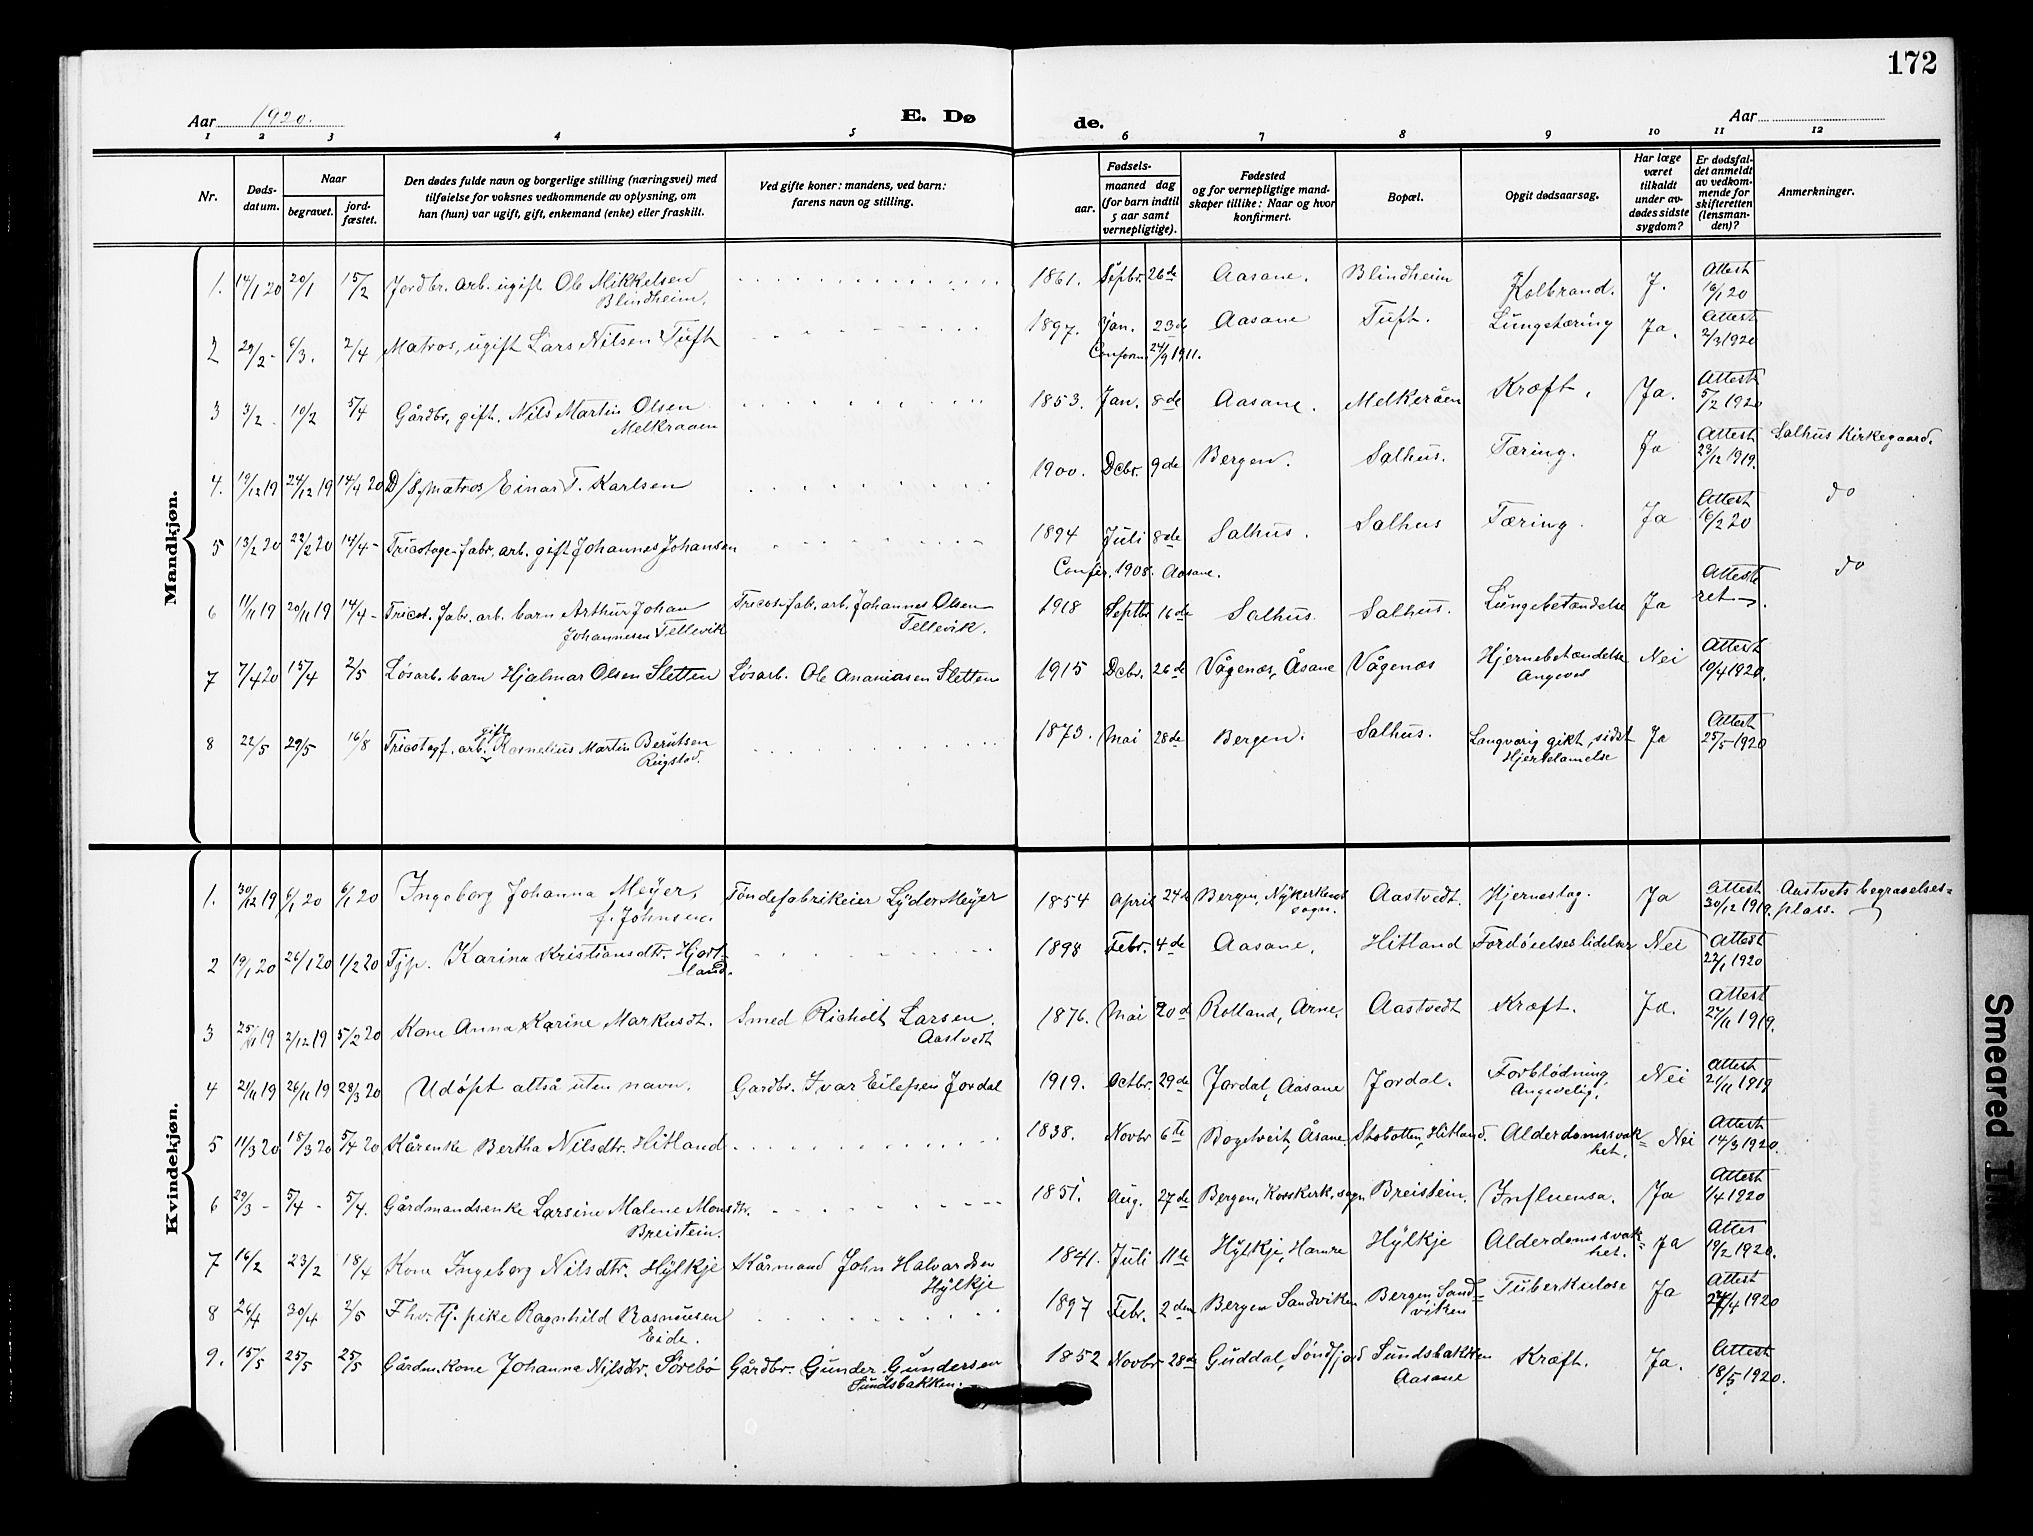 172
Aar 1920. E. Dø de. Aar
1 2 3 4 5 6 7 8 9 10 11 12
Nr.
Døds-
datum.
Naar
begravet.
jord-
fæstet.
Den dødes fulde navn og borgerlige stilling (næringsvei) med
tilføielse for voksnes vedkommende av oplysning, om
han (hun) var ugift, gift, enkemand (enke) eller fraskilt.
Ved gifte koner: mandens, ved barn:
farens navn og stilling.
Fødsels-
aar.
maaned dag
(for barn indtil
5 aar samt
vernepligtige).
Fødested
og for vernepligtige mand-
skaper tillike: Naar og hvor
konfirmert.
Bopæl.
Opgit dødsaarsag.
Har læge
været
tilkaldt
under av-
dødes sidste
sygdom?
Er dødsfal-
det anmeldt
av vedkom-
mende for
skifteretten
(lensman-
den)?
Anmerkninger.
Mandkjøn.
1. 14/1 20 20/1 15/2 Jordbr. arb. ugift Ole Mikkelsen 1861. Septbr. 26de Aasane. Blindheim Kolbrand. J. Attest
Blindheim. 16/1 20
2 29/2- 6/3. 2/4 Matros, ugift Lars Nilsen Tuft 1897. Jan. 23de Aasane Tuft. Lungetæring Ja. Attest
Conform 24/9 1911. 2/3 1920
3 3/2- 10/2 5/4 Gårdbr, gift. Nils Martin Olsen 1853. Jan. 8de Aasane. Melkeråen Kræft. Ja. Attest
Melkraaen 5/2 1920
4. 19/12 19 24/12 19 14/4 20 D/S, Matros, Einar T. Karlsen 1900. Dcbr. 9de Bergen. Salhus. Tæring. Ja Attest Salhus Kirkegaard.
23/12 1919.
5 13/2 20 22/2 20 14/4- Tricotage-fabr. arb. gift Johannes Johansen 1894 Juli 8de Salhus. Salhus Tæring. Ja Attest do
Confir. 1908. Aasane. 16/2 20
6 11/11 19 20/11 19 14/4- Tricot. fabr. arb. barn Arthur Johan Tricot-fabr. arb. Johannes Olsen 1918 Septbr 16de Salhus Salhus. Lungebetændelse Ja Atteste do
Johannesen Tellevik Tellevik. ret.
7 7/4 20 15/4 2/5 Løsarb. barn Hjalmar Olsen Sletten Løsarb. Ole Ananiasen Sletten 1915 Dcbr. 26de Vågenæs, Åsane Vågenæs Hjernebetændelse Nei Attest
Angevet 10/4 1920.
8 22/5 29/5 16/8 Tricotagf. arb. gift Kornelius Martin Berntsen 1873. Mai 28de Bergen. Salhus. Langvarig gikt, sidst Ja Attest
Ringstad. Hjertelamelse 25/5 1920
Kvindekjøn.
1. 30/12 19 6/1 20 6/1 20 Ingeborg Johanna Meyer, Tøndefabrikeier Lyder Meyer 1854 April 24de Bergen, Nykerkens Aastvedt. Hjerneslag. Ja Attest Aastvets begravelses-
f. Johnsen. sogn. 30/12 1919. plass.
2 19/1 20 26/1 20 1/2 20 Tjp. Karina Kristiansdtr. Hjort- 1898 Febr. 4de Aasane. Hitland Fordøielseslidelser Nei Attest
land. 22/1 1920
3 25/11 19 2/12 19 5/2 20 Kone Anna Karine Markusdt. Smed Richolt Larsen. 1876. Mai 20de Rolland, Arne. Aastvedt Kræft. Ja. Attest
Aastvedt 27/11 1919.
4 21/11 19 26/11 19 28/3 20 Udøpt altså uten navn. Gardbr. Ivar Eilefsen Jordal 1919. Octbr. 29de Jordal, Aasane Jordal. Forblødning Nei Attest
Angevelig. 21/11 1919
5 11/3 20 18/3 20 5/4 20 Kårenke Bertha Nilsdtr. Hitland 1838. Novbr 6te Bogetveit, Åsane Stobotten, Hitland. Alderdomssvak- Nei Attest
het. 14/3 1920.
6 29/3 - 5/4 - 5/4. Gårdmandsenke Larsine Malene Monsdtr. 1851. Aug. 27de Bergen, Korskirk. sogn Breistein. Influensa. Ja Attest
Breistein. 1/4 1920
7 16/2 23/2 18/4 Kone Ingeborg Nilsdtr. Hylkje Kårmand John Halvardsen 1841. Juli 11te Hylkje, Hamre Hylkje Alderdomssvak- Ja Attes
Hylkje het. 19/2 1920.
8 26/4 30/4 2/5 Fhv. tj. pike Ragnhild Rasmusen 1897 Febr. 2den Bergen Sandviken Bergen, Sand- Tuberkulose Ja Attest
Eide. viken 27/4 1920
9. 15/5 25/5 25/5 Gårdm. kone Johanna Nilsdtr. Sörebö Gårdbr. Gunder Gundersen 1852 Novbr 28de Guddal, Söndfjord Sundsbakken Kræft. Ja. Attest
Sundsbakken. Aasane 18/5 1920.
Smeared